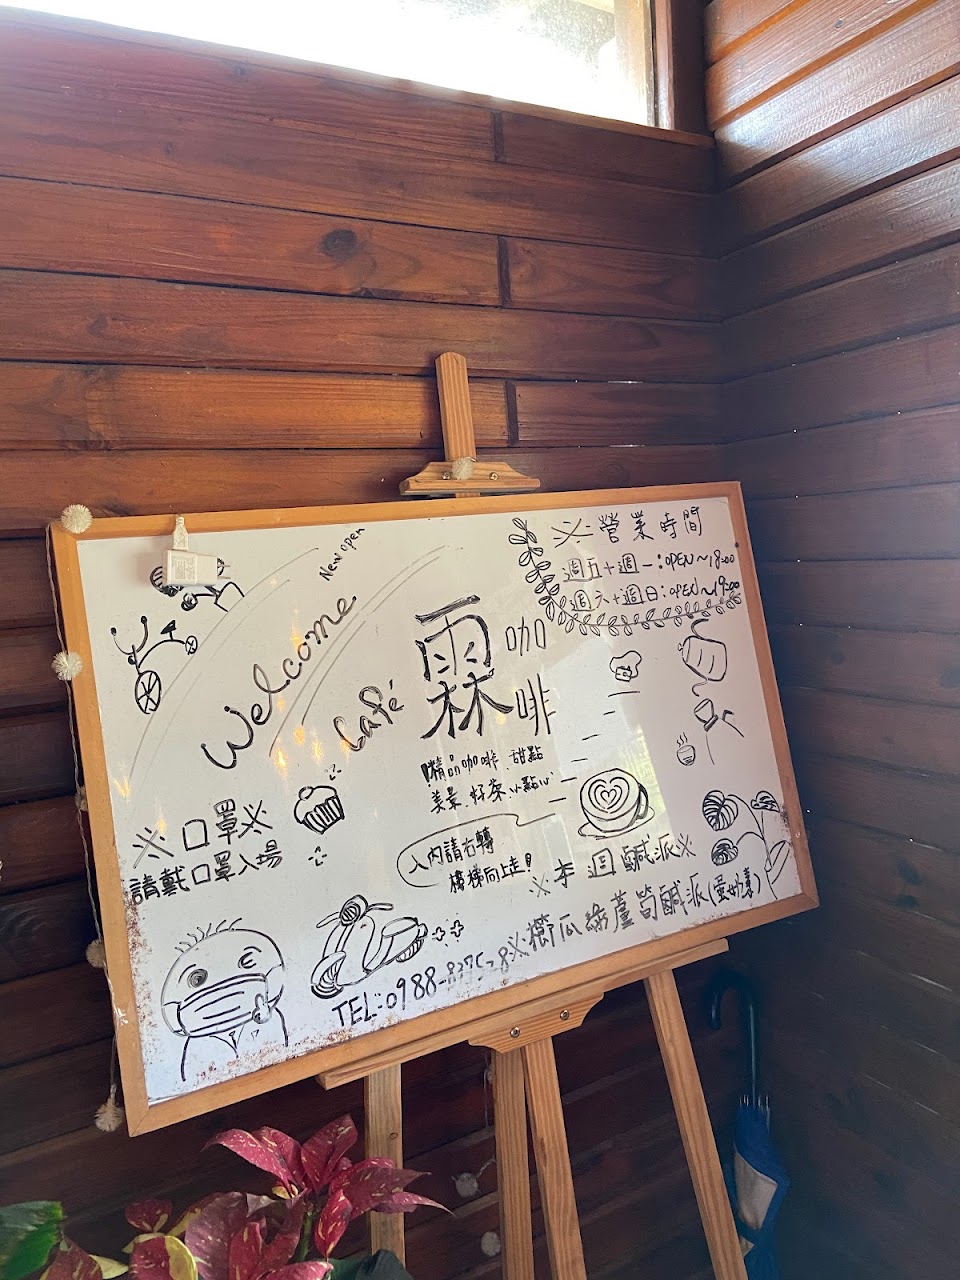 New open
Welcome
Café
霖咖啡
精品咖啡、甜點
美景、好茶、小點心
入內請右轉
樓梯向上走!
※營業時間
週五+週一:OPEN~18:00
週六+週日:OPEN~19:00
※口罩※
請戴口罩入場
※本週鹹派※
※櫛瓜綠蘆筍鹹派(蛋奶素)
TEL:0988-837528